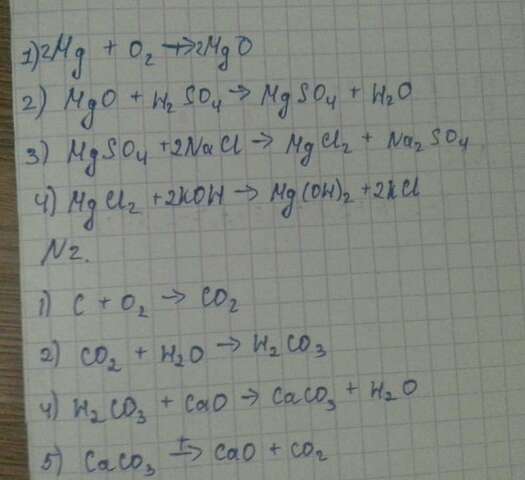 1) 2Mg + O₂ → 2MgO
2) MgO + H₂SO₄ → MgSO₄ + H₂O
3) MgSO₄ + 2NaCl → MgCl₂ + Na₂SO₄
4) MgCl₂ + 2KOH → Mg(OH)₂ + 2KCl
N2.
1) C + O₂ → CO₂
2) CO₂ + H₂O → H₂CO₃
4) H₂CO₃ + CaO → CaCO₃ + H₂O
5) CaCO₃ t→ CaO + CO₂